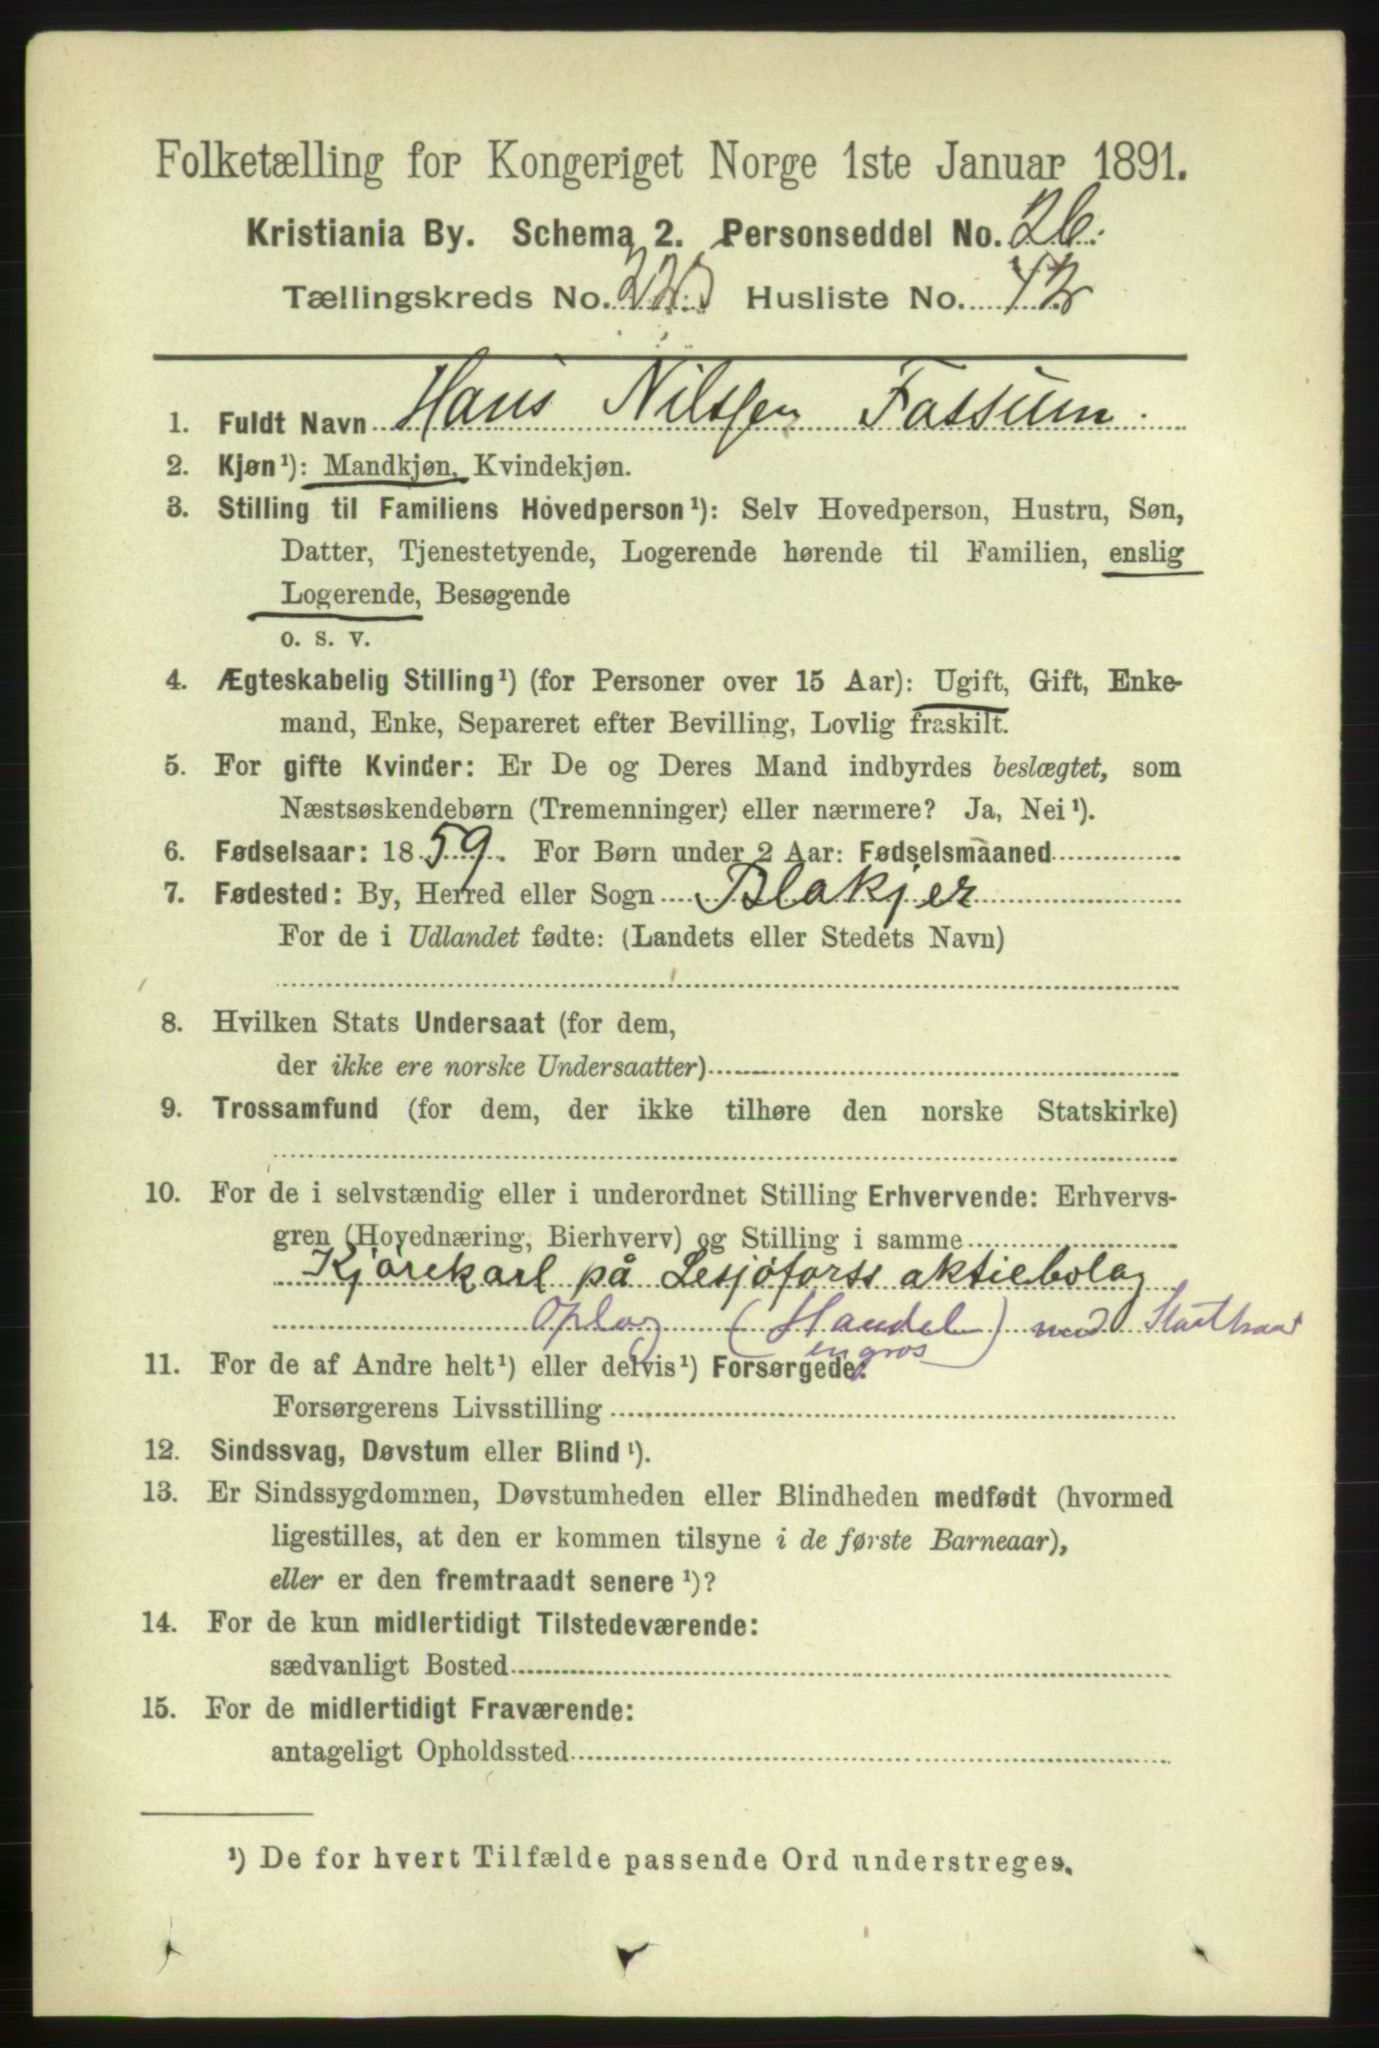 Folketælling for Kongeriget Norge 1ste Januar 1891.
Kristiania By. Schema 2. Personseddel No. 26.
Tællingskreds No. 220 Husliste No. 42
1. Fuldt Navn Hans Nilssen Fossum.
2. Kjøn¹): Mandkjøn, Kvindekjøn.
3. Stilling til Familiens Hovedperson¹): Selv Hovedperson, Hustru, Søn,
Datter, Tjenestetyende, Logerende hørende til Familien, enslig
Logerende, Besøgende
o. s. v.
4. Ægteskabelig Stilling¹) (for Personer over 15 Aar): Ugift, Gift, Enke-
mand, Enke, Separeret efter Bevilling, Lovlig fraskilt.
5. For gifte Kvinder: Er De og Deres Mand indbyrdes beslægtet, som
Næstsøskendebørn (Tremenninger) eller nærmere? Ja, Nei¹).
6. Fødselsaar: 1859. For Børn under 2 Aar: Fødselsmaaned
7. Fødested: By, Herred eller Sogn Blakjer
For de i Udlandet fødte: (Landets eller Stedets Navn)
8. Hvilken Stats Undersaat (for dem,
der ikke ere norske Undersaatter)
9. Trossamfund (for dem, der ikke tilhøre den norske Statskirke)
10. For de i selvstændig eller i underordnet Stilling Erhvervende: Erhvervs-
gren (Hovednæring, Bierhverv) og Stilling i samme
Kjørekarl på Lesjöforss aktiebolag
Oplag (Handel) med
engros
11. For de af Andre helt¹) eller delvis¹) Forsørgede:
Forsørgerens Livsstilling
12. Sindssvag, Døvstum eller Blind¹).
13. Er Sindssygdommen, Døvstumheden eller Blindheden medfødt (hvormed
ligestilles, at den er kommen tilsyne i de første Barneaar),
eller er den fremtraadt senere¹)?
14. For de kun midlertidigt Tilstedeværende:
sædvanligt Bosted
15. For de midlertidigt Fraværende:
antageligt Opholdssted
¹) De for hvert Tilfælde passende Ord understreges.